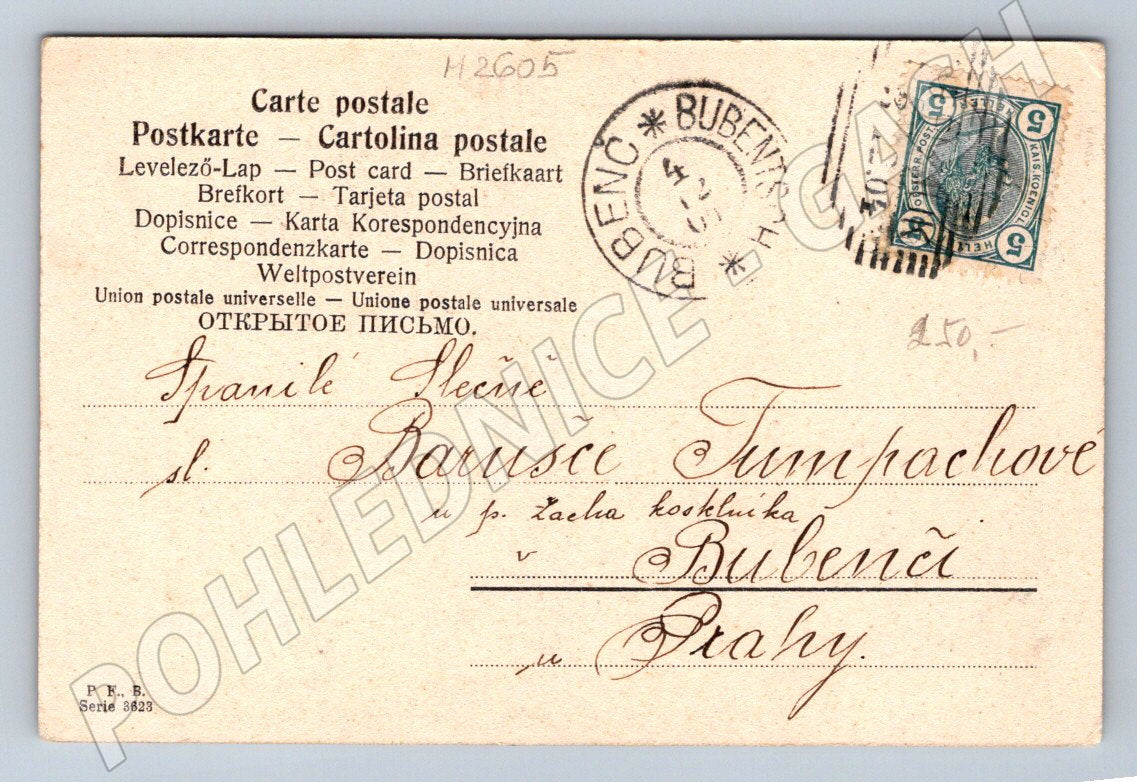 H2605
Carte postale
Postkarte — Cartolina postale
Levelező-Lap — Post card — Briefkaart
Brefkort — Tarjeta postal
Dopisnice — Karta Korespondencyjna
Correspondenzkarte — Dopisnica
Weltpostverein
Union postale universelle — Unione postale universale
ОТКРЫТОЕ ПИСЬМО.
BUBENČ * BUBENTSCH *
4
5 HELLER 5
KAIS. KOENIGL.
OESTERR. POST
5 5
150,—
Spanilé Slečně
sl. Barušce Tumpachové
u p. Zacha
v Bubenči
u Prahy.
P. F., B.
Serie 3623
POHLEDNICE.CASH